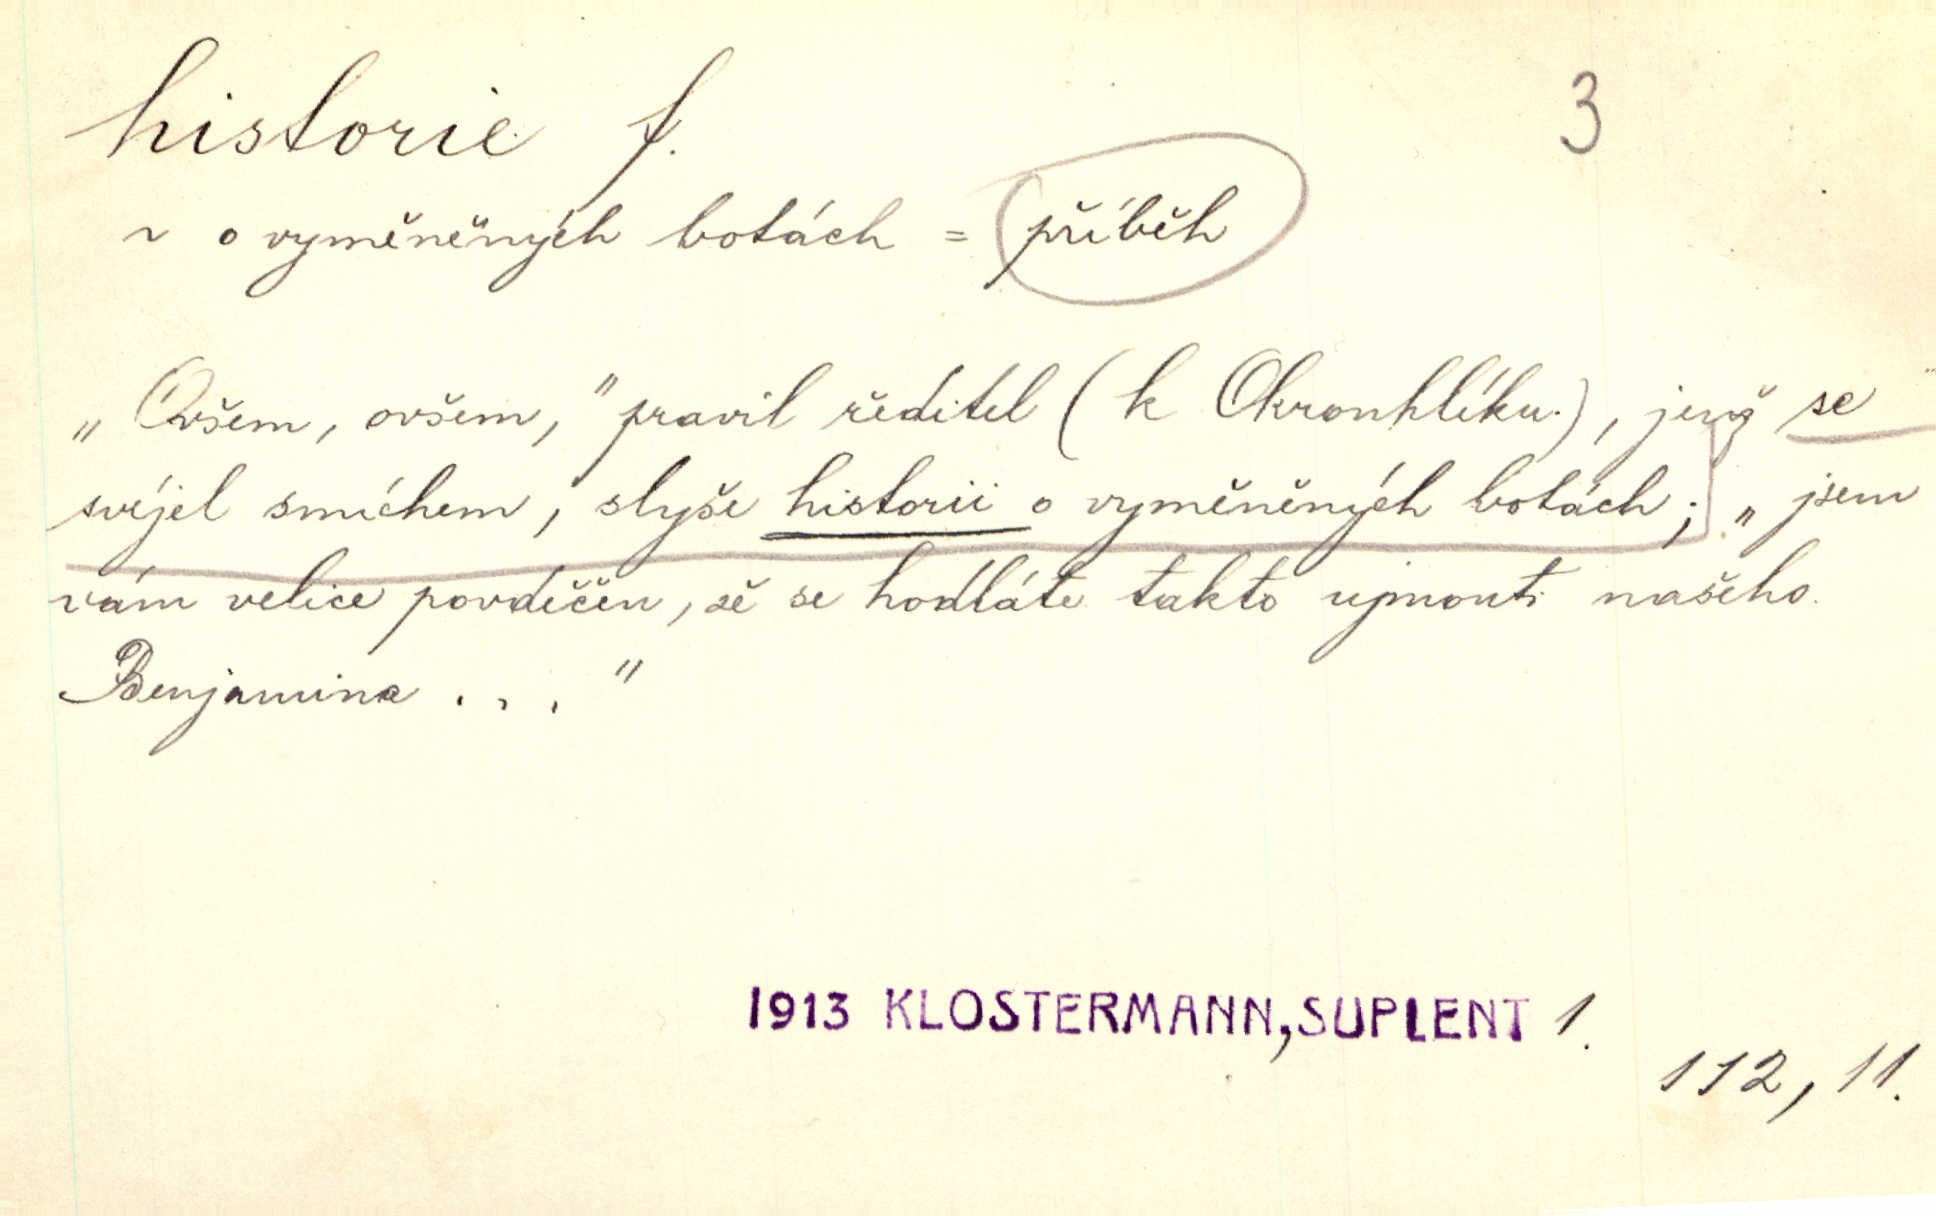 historie f.
3
~ o vyměněných botách = příběh
„Ovšem, ovšem,” pravil ředitel (k Okrouhlíku.), jenž se
svíjel smíchem, slyše historii o vyměněných botách; „jsem
vám velice povděčen, že se hodláte takto ujmouti našeho
Benjamina . . . ”
1913 KLOSTERMANN, SUPLENT 1.
112, 11.